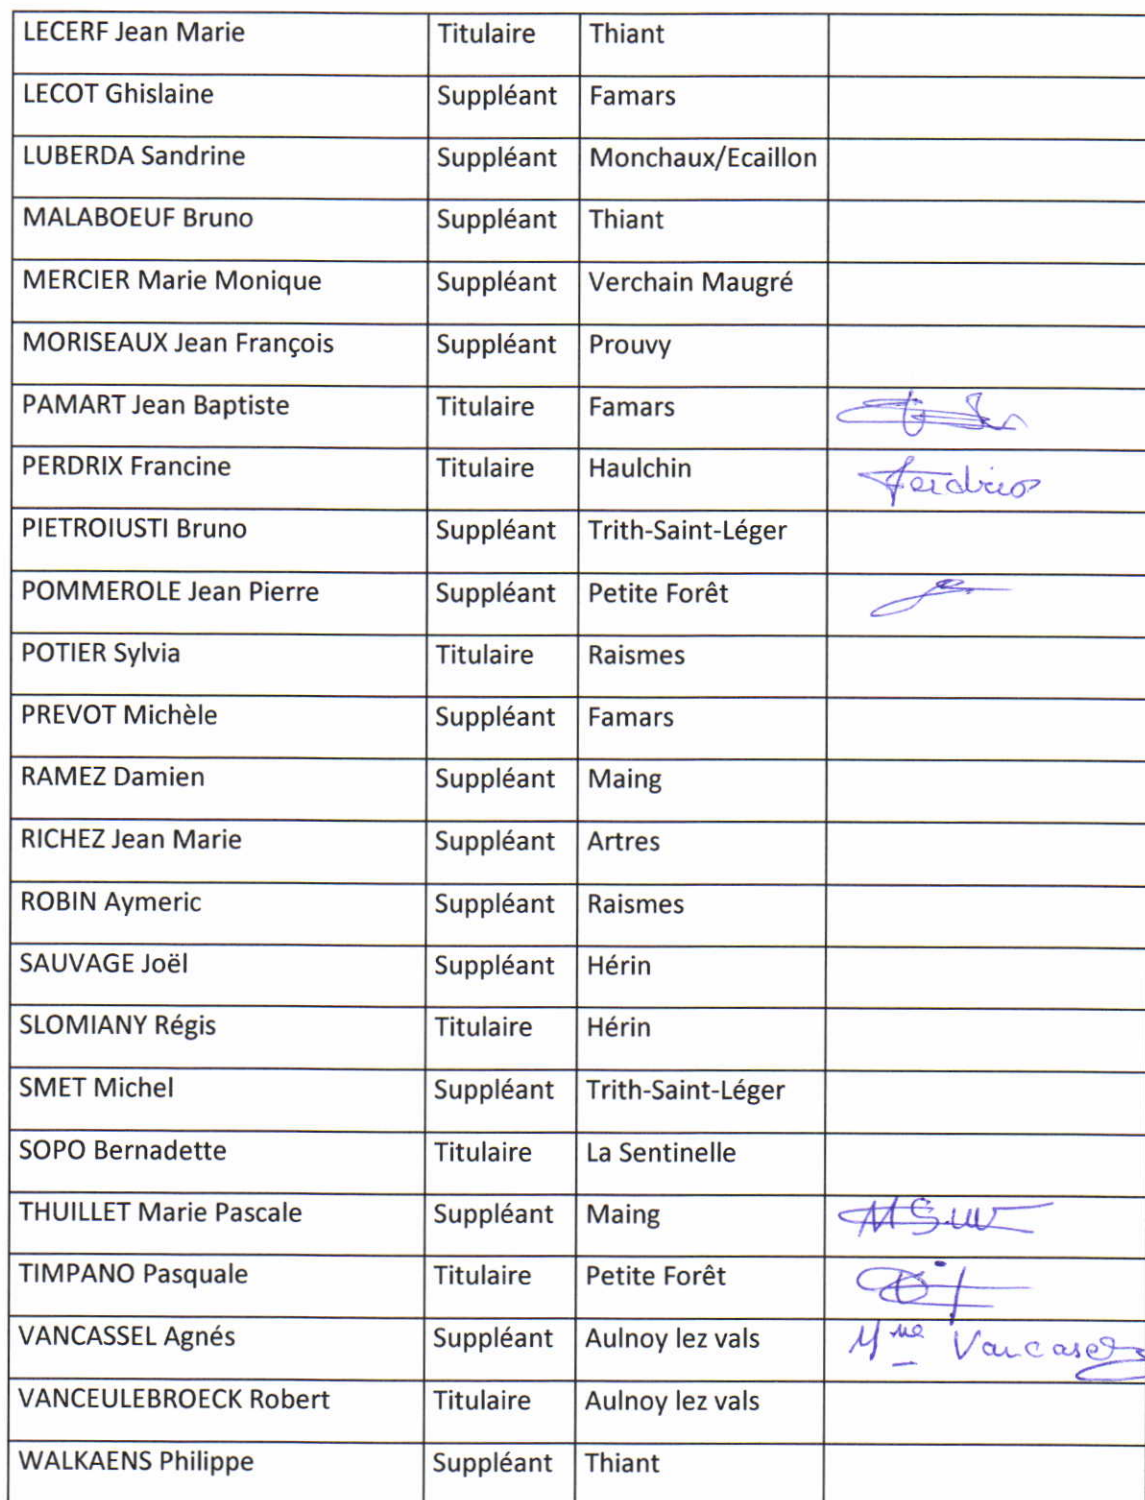 LECERF Jean Marie Titulaire Thiant
LECOT Ghislaine Suppléant Famars
LUBERDA Sandrine Suppléant Monchaux/Ecaillon
MALABOEUF Bruno Suppléant Thiant
MERCIER Marie Monique Suppléant Verchain Maugré
MORISEAUX Jean François Suppléant Prouvy
PAMART Jean Baptiste Titulaire Famars
PERDRIX Francine Titulaire Haulchin
PIETROIUSTI Bruno Suppléant Trith-Saint-Léger
POMMEROLE Jean Pierre Suppléant Petite Forêt
POTIER Sylvia Titulaire Raismes
PREVOT Michèle Suppléant Famars
RAMEZ Damien Suppléant Maing
RICHEZ Jean Marie Suppléant Artres
ROBIN Aymeric Suppléant Raismes
SAUVAGE Joël Suppléant Hérin
SLOMIANY Régis Titulaire Hérin
SMET Michel Suppléant Trith-Saint-Léger
SOPO Bernadette Titulaire La Sentinelle
THUILLET Marie Pascale Suppléant Maing
TIMPANO Pasquale Titulaire Petite Forêt
VANCASSEL Agnés Suppléant Aulnoy lez vals Mme
VANCEULEBROECK Robert Titulaire Aulnoy lez vals
WALKAENS Philippe Suppléant Thiant